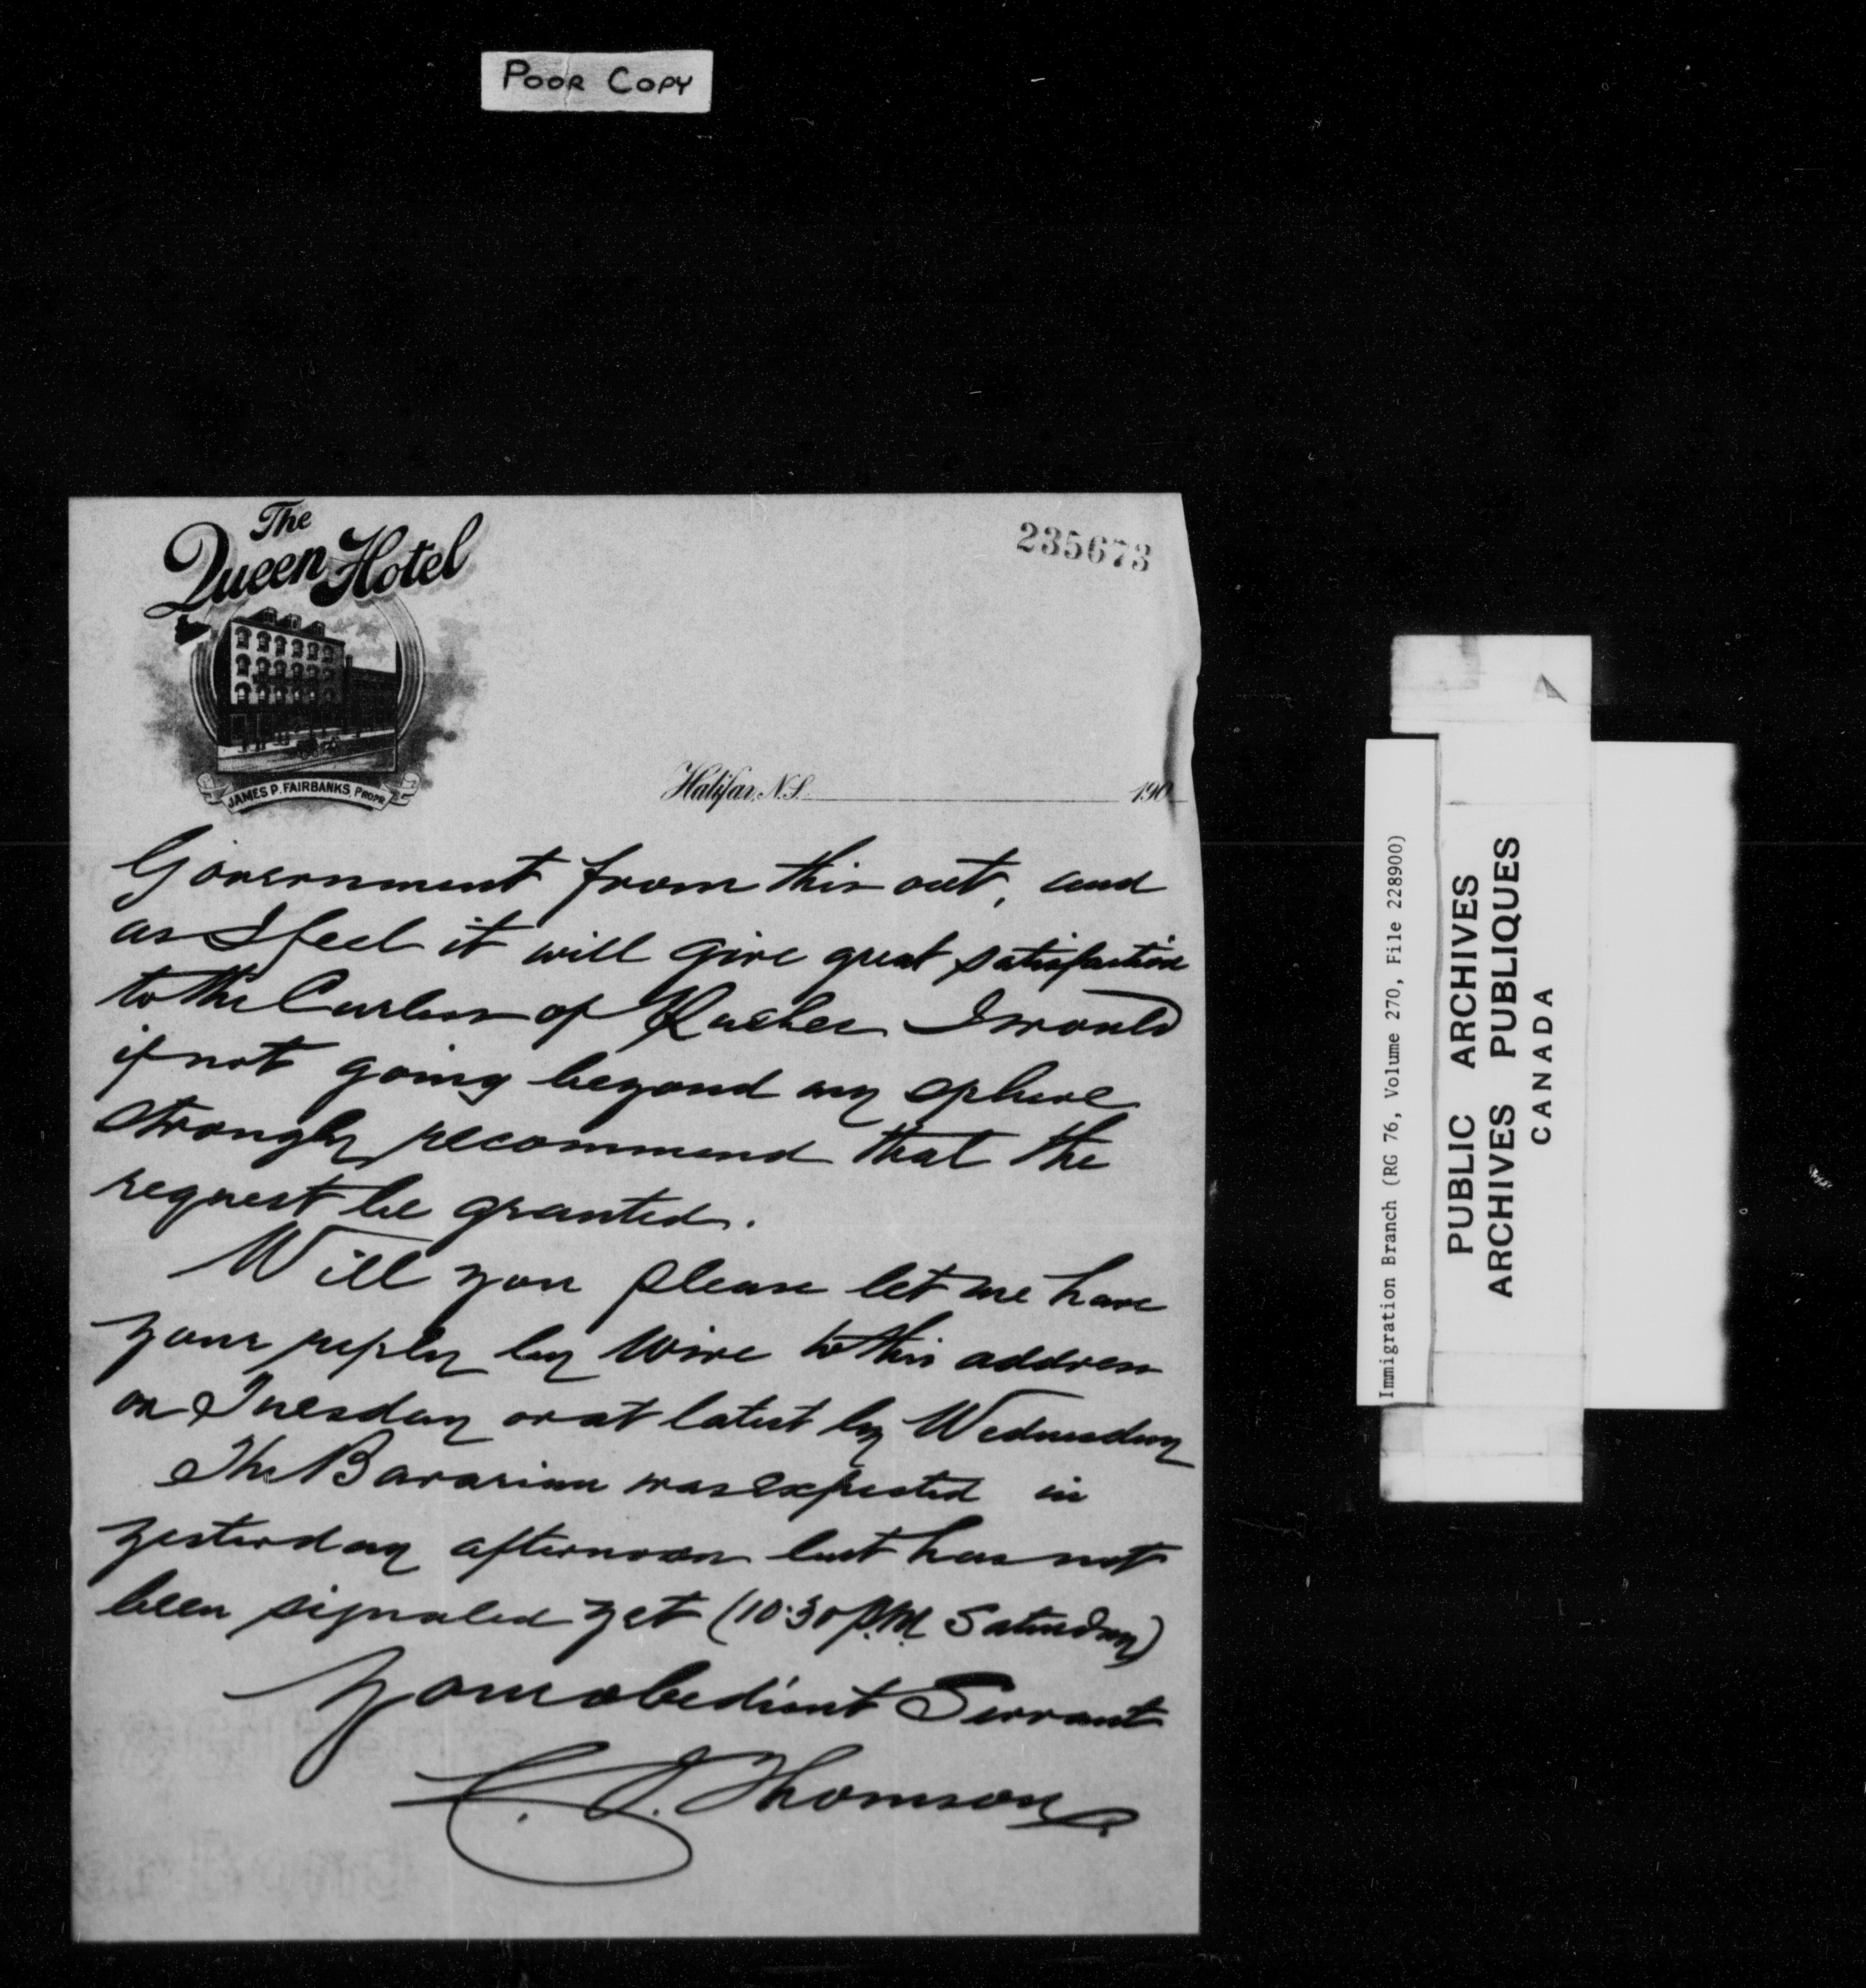 POOR COPY
The
Queen Hotel
235673
JAMES P. FAIRBANKS, PROPR.
Halifax, N.S. 190
Government from this out, and
as I feel it will give great satisfaction
to the Curlers of Quebec I would
if not going beyond my sphere
strongly recommend that the
request be granted.
Will you please let me have
your reply by wire to this address
on Tuesday or at latest by Wednesday
The Bavarian was expected in
yesterday afternoon but has not
been signaled yet (10.30 P.M. Saturday)
Your obedient Servant
C. J. Thomson
Immigration Branch (RG 76, Volume 270, File 228900)
PUBLIC ARCHIVES
ARCHIVES PUBLIQUES
CANADA